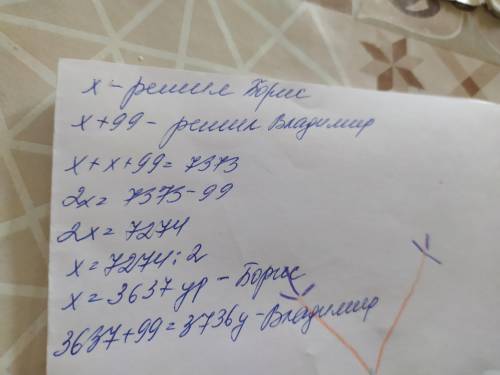 x - решил Борис
x + 99 - решил Владимир
x + x + 99 = 7373
2x = 7373 - 99
2x = 7274
x = 7274 : 2
x = 3637 ур - Борис
3637 + 99 = 3736 у - Владимир